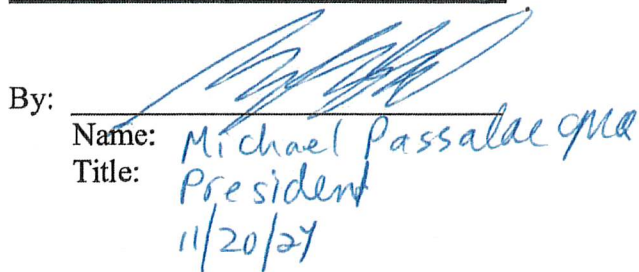 By:
Name: Michael Passalacqua
Title: President
11/20/24